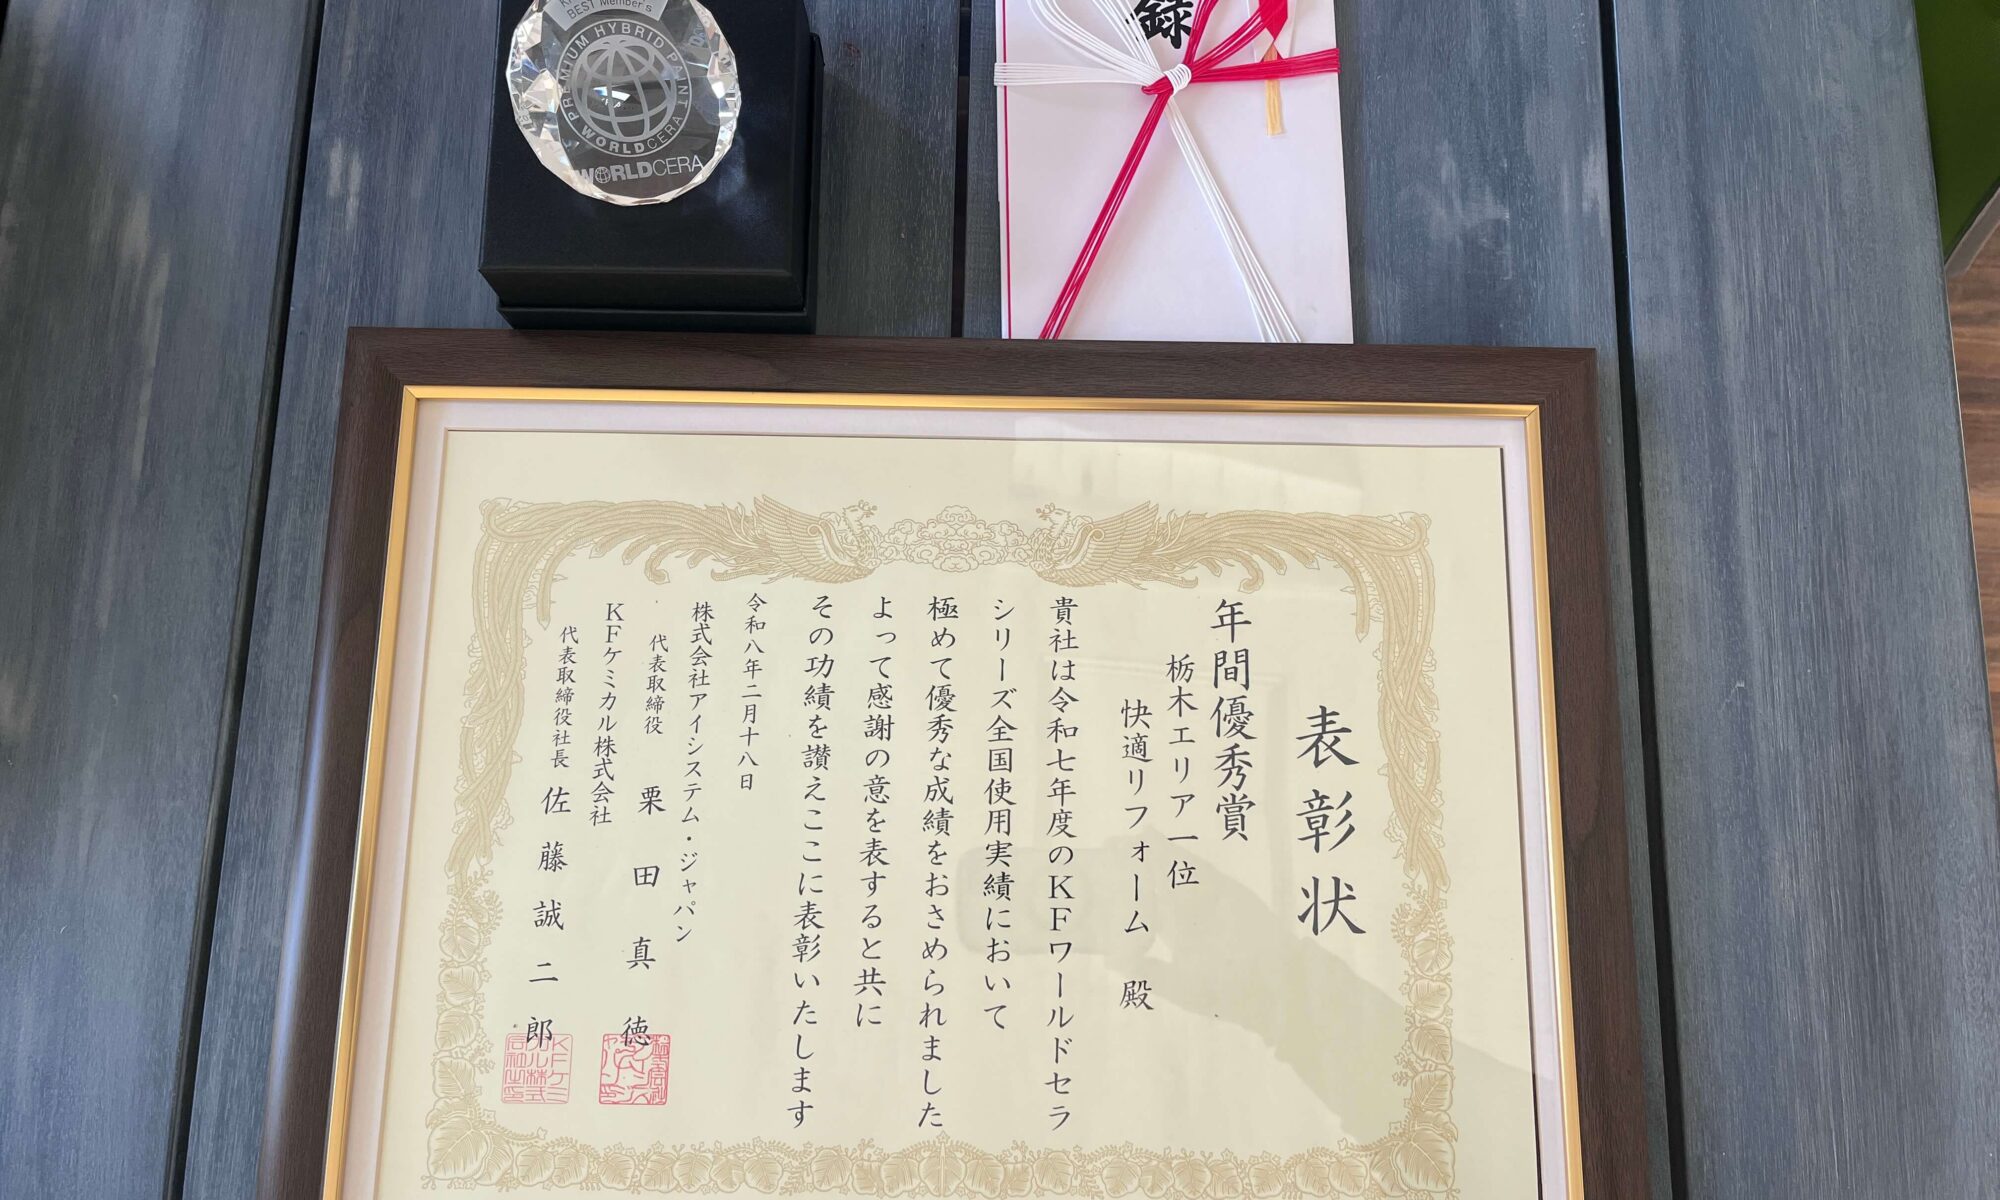 BEST Member's
PREMIUM HYBRID PAINT
WORLDCERA
WORLDCERA
録
表彰状
年間優秀賞
栃木エリア一位
快適リフォーム 殿
貴社は令和七年度のKFワールドセラ
シリーズ全国使用実績において
極めて優秀な成績をおさめられました
よって感謝の意を表すると共に
その功績を讃えここに表彰いたします
令和八年二月十八日
株式会社アイシステム・ジャパン
代表取締役 栗田真徳
KFケミカル株式会社
代表取締役社長 佐藤誠二郎